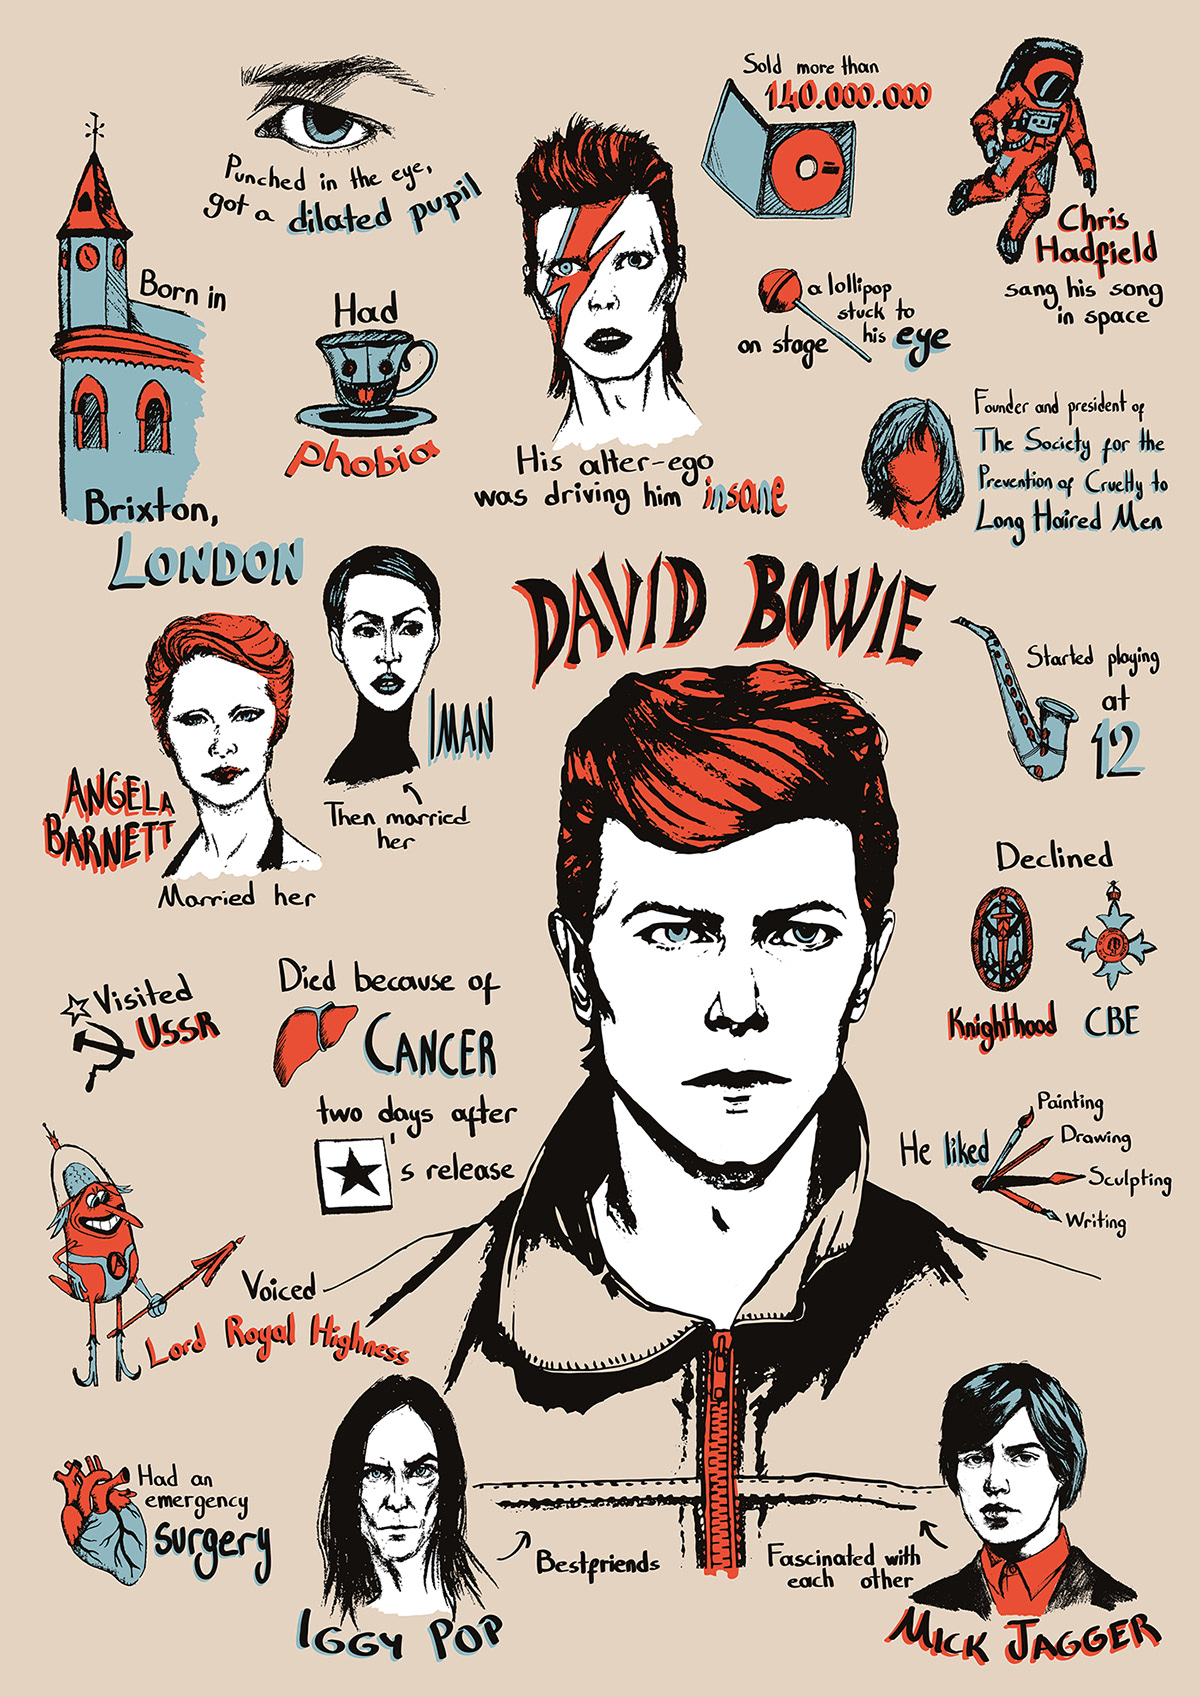 Punched in the eye,
got a dilated pupil
Sold more than
140.000.000
Chris
Hadfield
sang his song
in space
Born in
Brixton,
LONDON
Had
Phobia
a lollipop
stuck to
his eye
on stage
His alter-ego
was driving him insane
Founder and president of
The Society for the
Prevention of Cruelty to
Long Haired Men
DAVID BOWIE
IMAN
Then married
her
ANGELA
BARNETT
Married her
Started playing
at
12
Declined
Knighthood
CBE
Visited
USSR
Died because of
CANCER
two days after
's release
He liked
Painting
Drawing
Sculpting
Writing
Voiced
Lord Royal Highness
A
Had an
emergency
surgery
Bestfriends
IGGY POP
Fascinated with
each other
MICK JAGGER